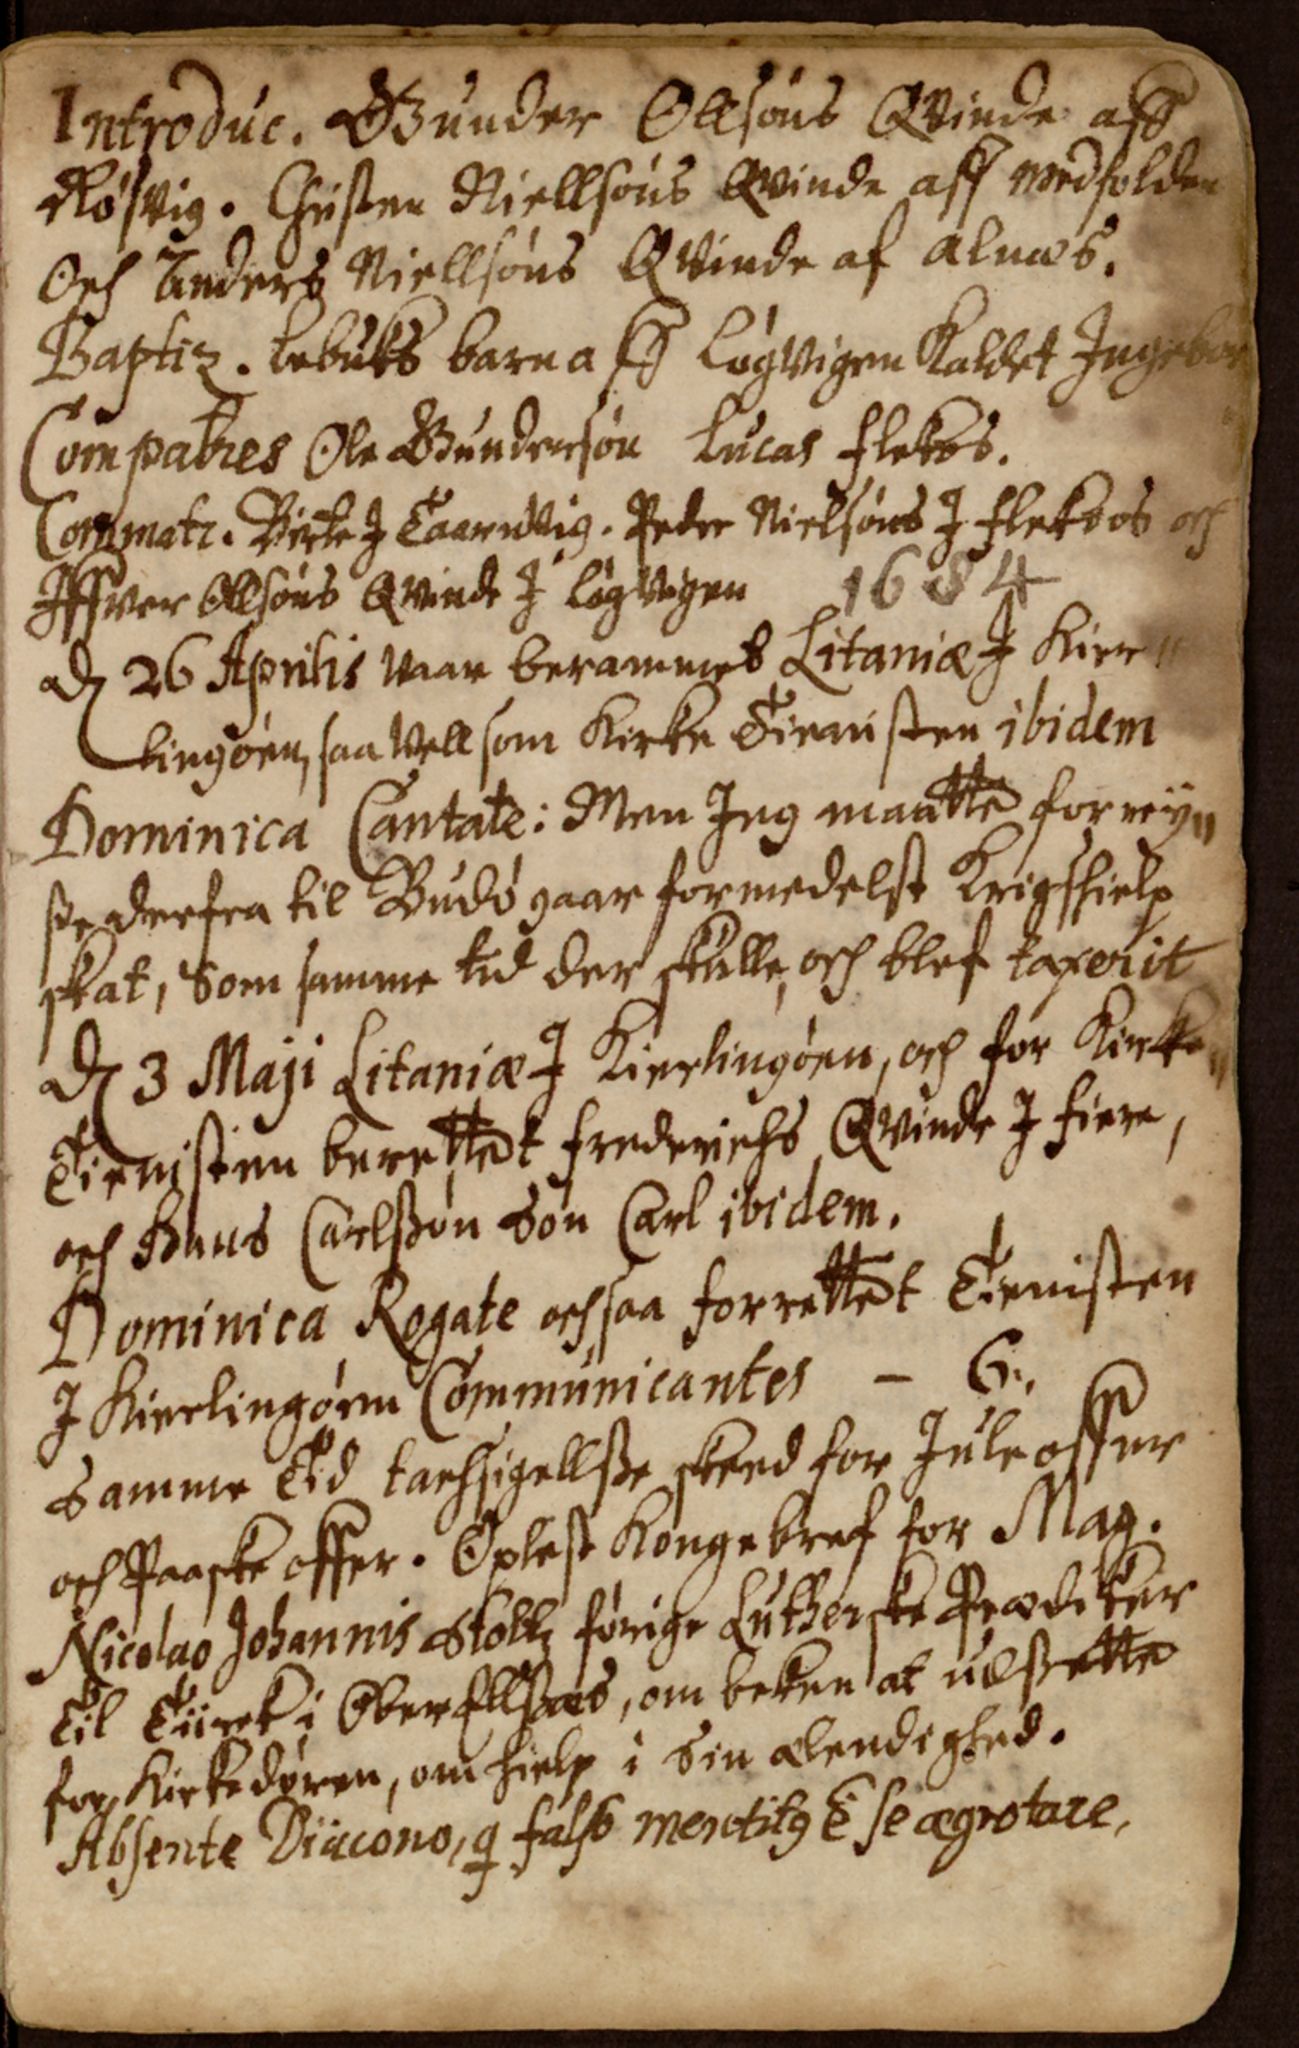 Introduc. Gunder Ollsøns Qvinde aff
Røsvig. Christen Niellsøns Qvinde aff Medfolden
Och Anders Niellsøns Qvinde af Alnæs.
Baptiz. barn aff Løgvigen Kaldet Ingebor
Compatres Ole Gundersøn Lucas flekøs.
Commatr. Birte J Taarnvig. Peder Nielsøns J flekøs och
Iffver Ollsøns Qvinde J Løgvigen 1684
D 26 Aprilis vaar berammet Litaniæ J Kier〃
lingøen, saa vell som Kirke Tienisten ibidem
Dominica Cantate: Men Jeg maatte forrey〃
sse derfra til Budøgaar formedelst Krigshielp
skat, som samme tid der skulle, och blef taxerit
D 3 Maji Litaniæ J Kierlingøen, och for Kirke〃
Tienisten berettet frederichs Qvinde J fiere,
och Hans Carlssøn Søn Carl ibidem.
Dominica Rogate ochsaa forrettet Tienisten
J Kierlingøen Communicantes – 6.
Samme Tid tachsigellsse skeed for Jule offer
och Paaske offer. Oplest Konge bref for Mag.
Nicolao Johannis Stoltz førige Lutherske Prædiker
til Türck i Ober Ellsas, om beken at udssette
for Kirkedøren, om hielp i sin elendighed.
Absente Diacono, q falsò mentitq ē se ægrotare.